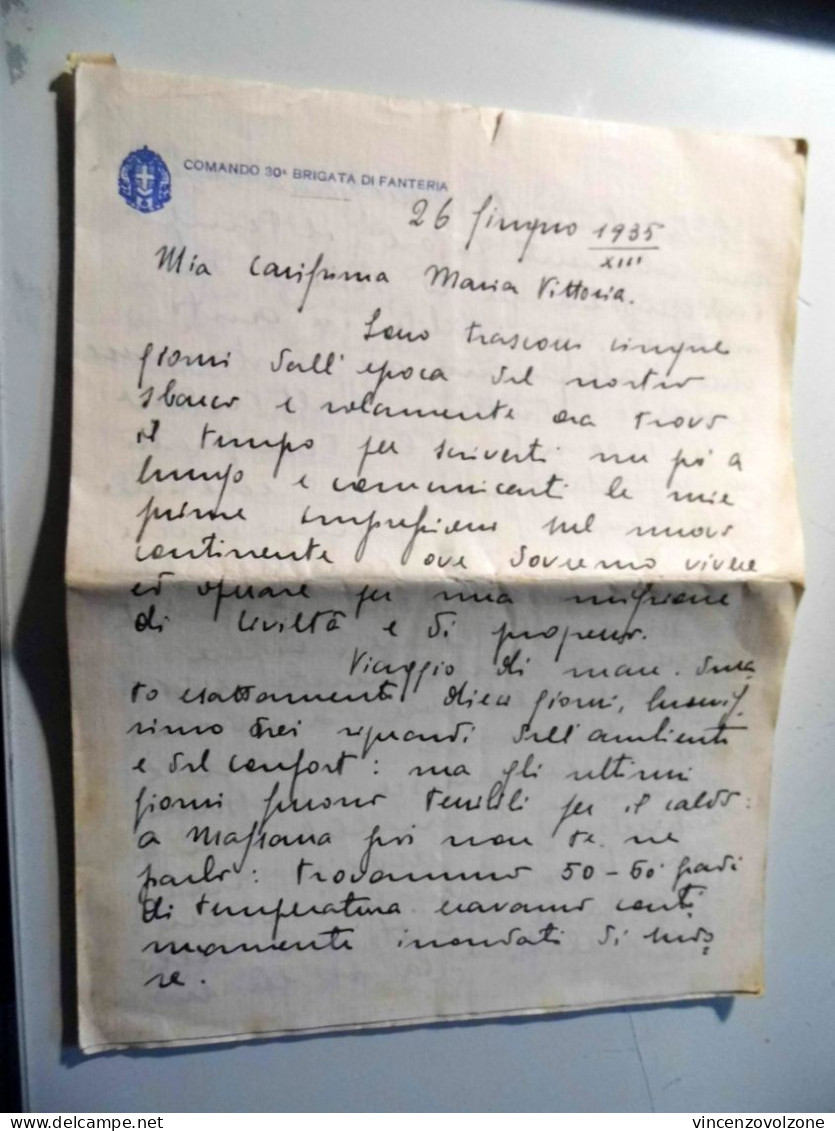 COMANDO 30ª BRIGATA DI FANTERIA
26 Giugno 1935
XIII
Mia Carissima Maria Vittoria.
Sono trascorsi cinque
giorni dall'epoca del nostro
sbarco e solamente ora trovo
il tempo per scriverti un pò a
lungo e comunicarti le mie
prime impressioni sul nuovo
continente ove dovremo vivere
ed operare per una missione
di civiltà e di progresso.
Viaggio di mare. Dura=
to esattamente dieci giorni,
simo nei riguardi dell'ambiente
e del confort: ma gli ultimi
giorni furono terribili per il caldo:
a Massaua poi non te ne
parlo: trovammo 50-60 gradi
di temperatura eravamo conti
nuamente inondati di sudo=
re.
delcampe.net
vincenzovolzone